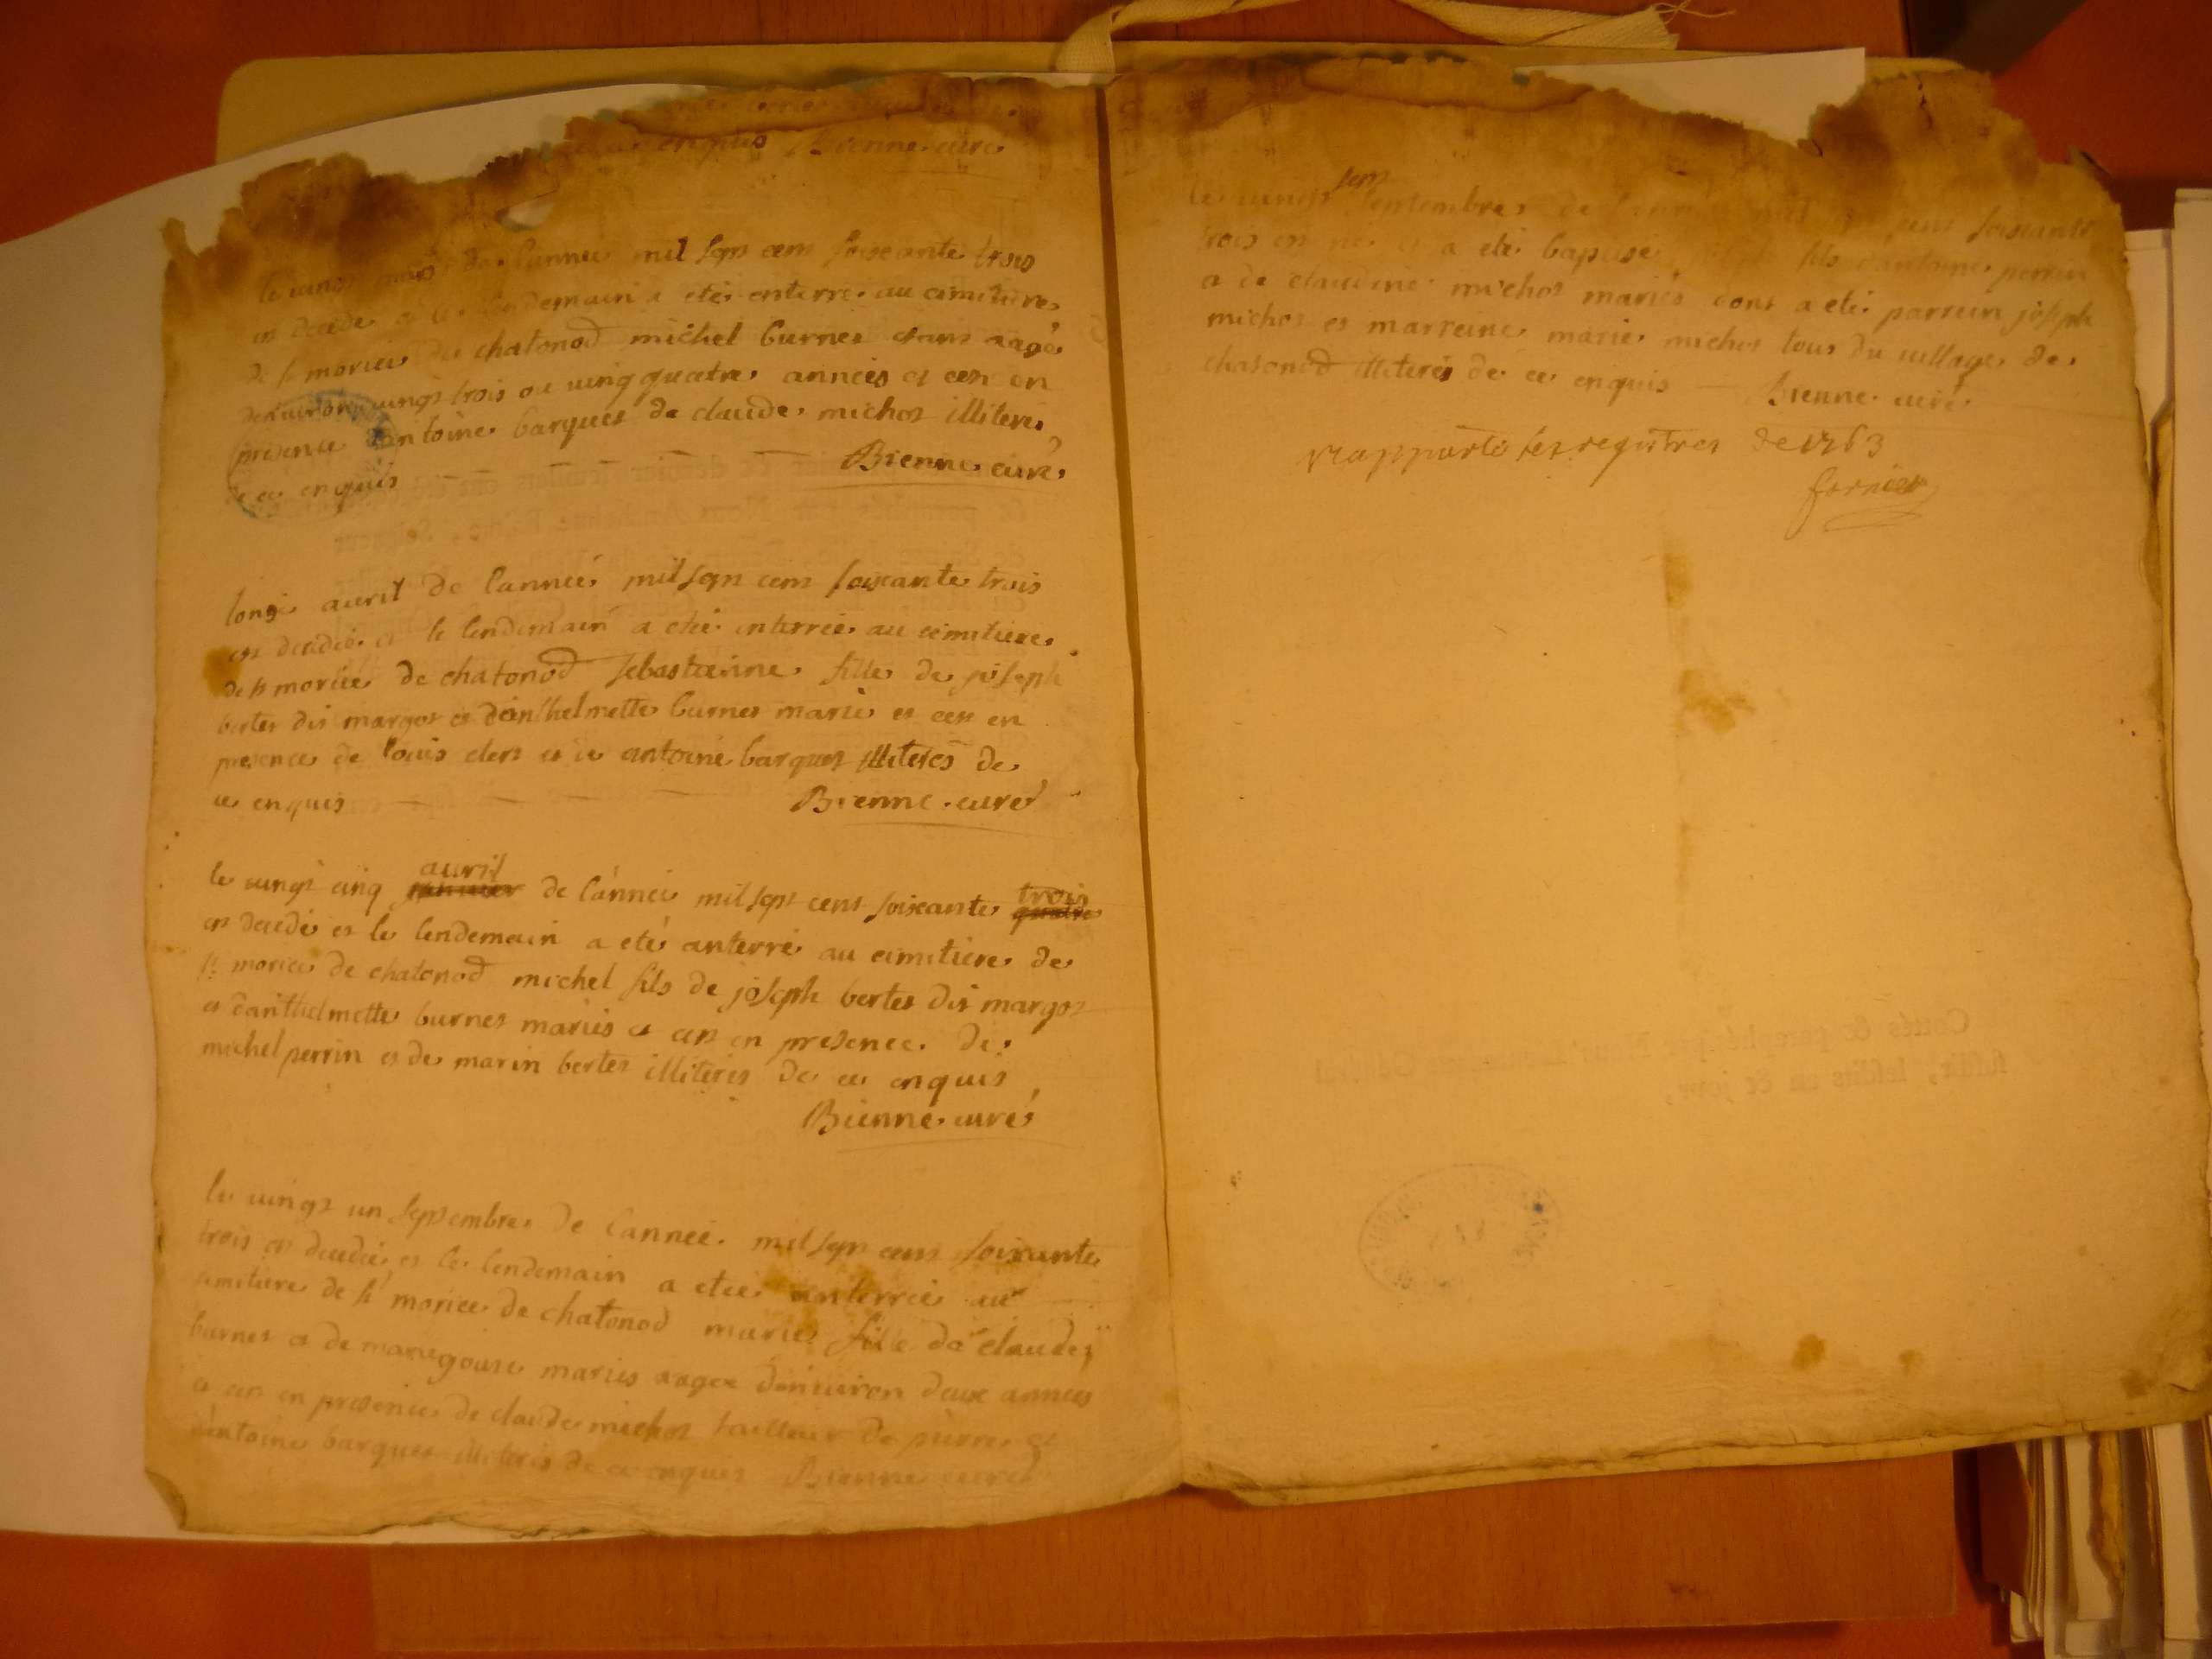 enquis Bienne curé
le vingt mars de l'année mil sept cent soixante trois
est decedé et le lendemain a eté enterré au cimitiere
de st morice de chatonod michel burnet dans aagé
denviron vingt trois ou vingt quatre années et cest en
presence dantoine barquet de claude michot illiteré
de ce enquis Bienne curé
lonze auril de l'année mil sept cent soixante trois
est decedée et le lendemain a eteé enterrée au cimitiere
de st morice de chatonod sebastienne fille de joseph
bertet dit margot et d'anthelmette burnet marié et cest en
presence de louis clert et de antoine barquet illiterés de
ce enquis Bienne curé
le vingt cinq auril de l'année mil sept cent soixante trois
est decedé et le lendemain a eté anterré au cimitiere de
st morice de chatonod michel fils de joseph bertet dit margot
et d'anthelmette burnet mariés et cest en presence de
michel perrin et de marin bertet illiterés de ce enquis
Bienne curé
le vingt un septembre de l'année mil sept cent soixante
trois est decedée et le lendemain a eteé enterrée au
cimitiere de st morice de chatonod marie fille de claude
burnet et de marie gouse mariés aagee denviron deux années
et cest en presence de claude michot tailleur de pierre et
dantoine barquet illiterés de ce enquis Bienne curé
le vingt sept septembre de l'année mil sept cent soixante
trois est né a eté baptisé fils d'antoine perrin
et de claudine michot mariés dont a eté parrein joseph
michot et marreine marie michot tous du village de
chatonod illiterés de ce enquis Bienne curé
rapporté les registres de 1763
fornier